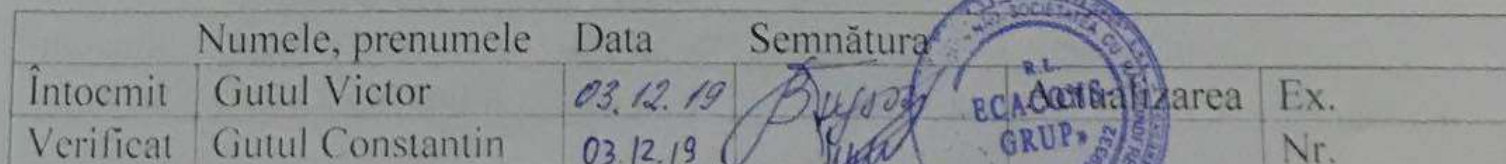 Numele, prenumele Data Semnătura
Întocmit Gutul Victor 03.12.19 Actualizarea Ex.
Verificat Gutul Constantin 03.12.19 Nr.
SOCIETATEA CU
R.L.
GRUP»